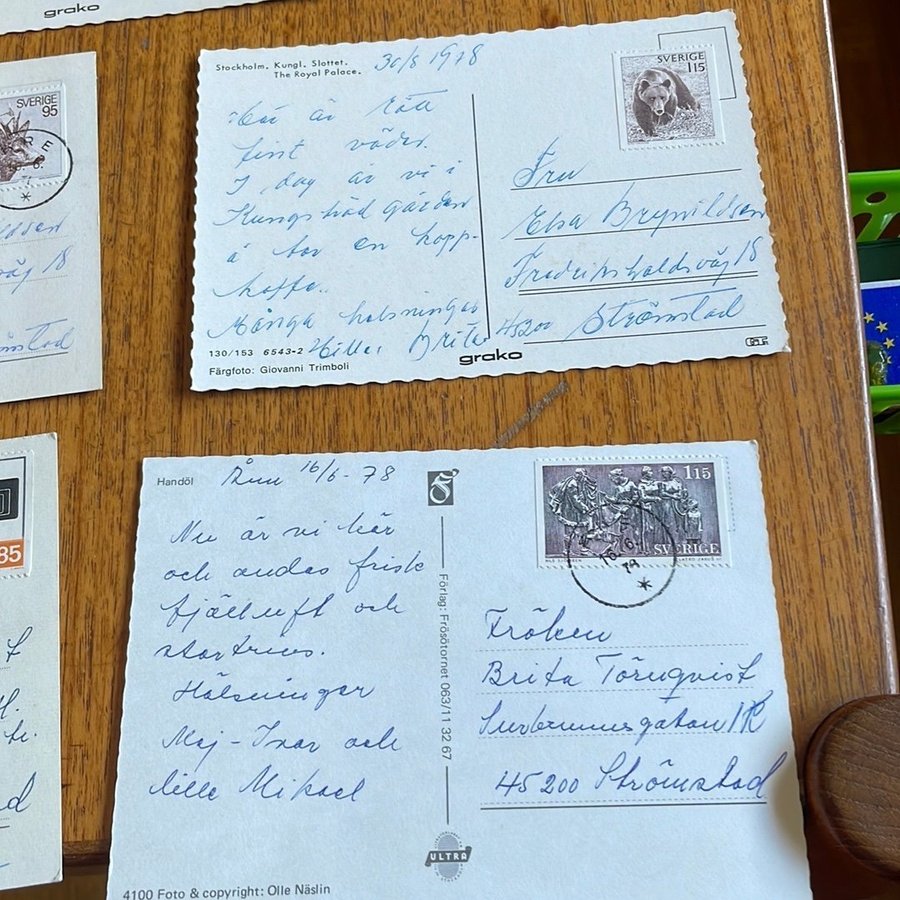 grako
SVERIGE
95
väg 18
85
Stockholm. Kungl. Slottet.
The Royal Palace.
30/8 1978
Här är rätt
fint väder.
I dag är vi i
Kungsträdgården
å tar en kopp
kaffe.
Många hälsningar
Brita
130/153 6543-2
Färgfoto: Giovanni Trimboli
grako
SVERIGE
115
Fru
Elsa Brynildsen
Fredrikshaldsväg 18
45200 Strömstad
Handöl
16/6-78
Nu är vi här
och andas frisk
fjälluft och
stortrivs.
Hälsningar
Maj-Ivar och
lille Mikael
4100 Foto & copyright: Olle Näslin
Förlag: Frösötornet 063/11 32 67
ULTRA
115
SVERIGE
Fröken
Brita Törnqvist
45200 Strömstad